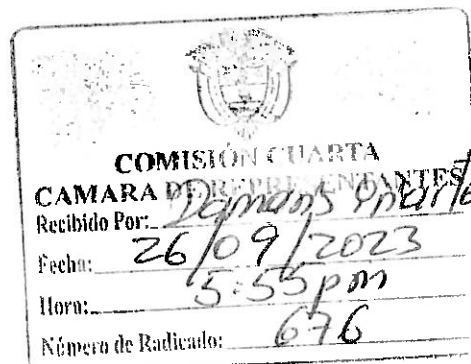 COMISIÓN CUARTA
CAMARA DE REPRESENTANTES
Recibido Por: Damaris
Fecha: 26/09/2023
Hora: 5:55pm
Número de Radicado: 676